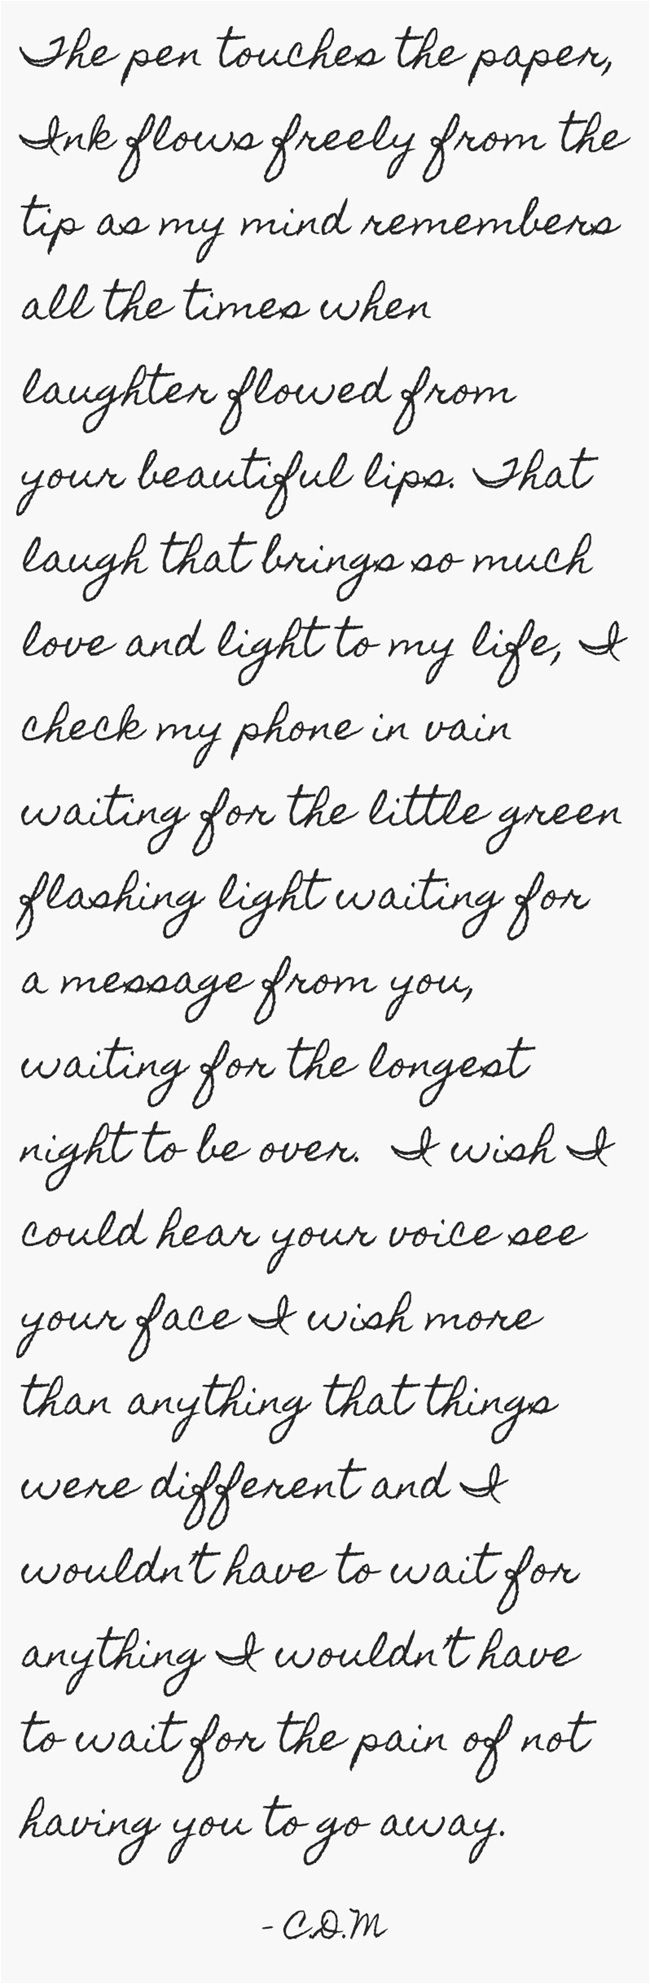 The pen touches the paper,
Ink flows freely from the
tip as my mind remembers
all the times when
laughter flowed from
your beautiful lips. That
laugh that brings so much
love and light to my life, I
check my phone in vain
waiting for the little green
flashing light waiting for
a message from you,
waiting for the longest
night to be over. I wish I
could hear your voice see
your face I wish more
than anything that things
were different and I
wouldn't have to wait for
anything I wouldn't have
to wait for the pain of not
having you to go away.
- C.D.M